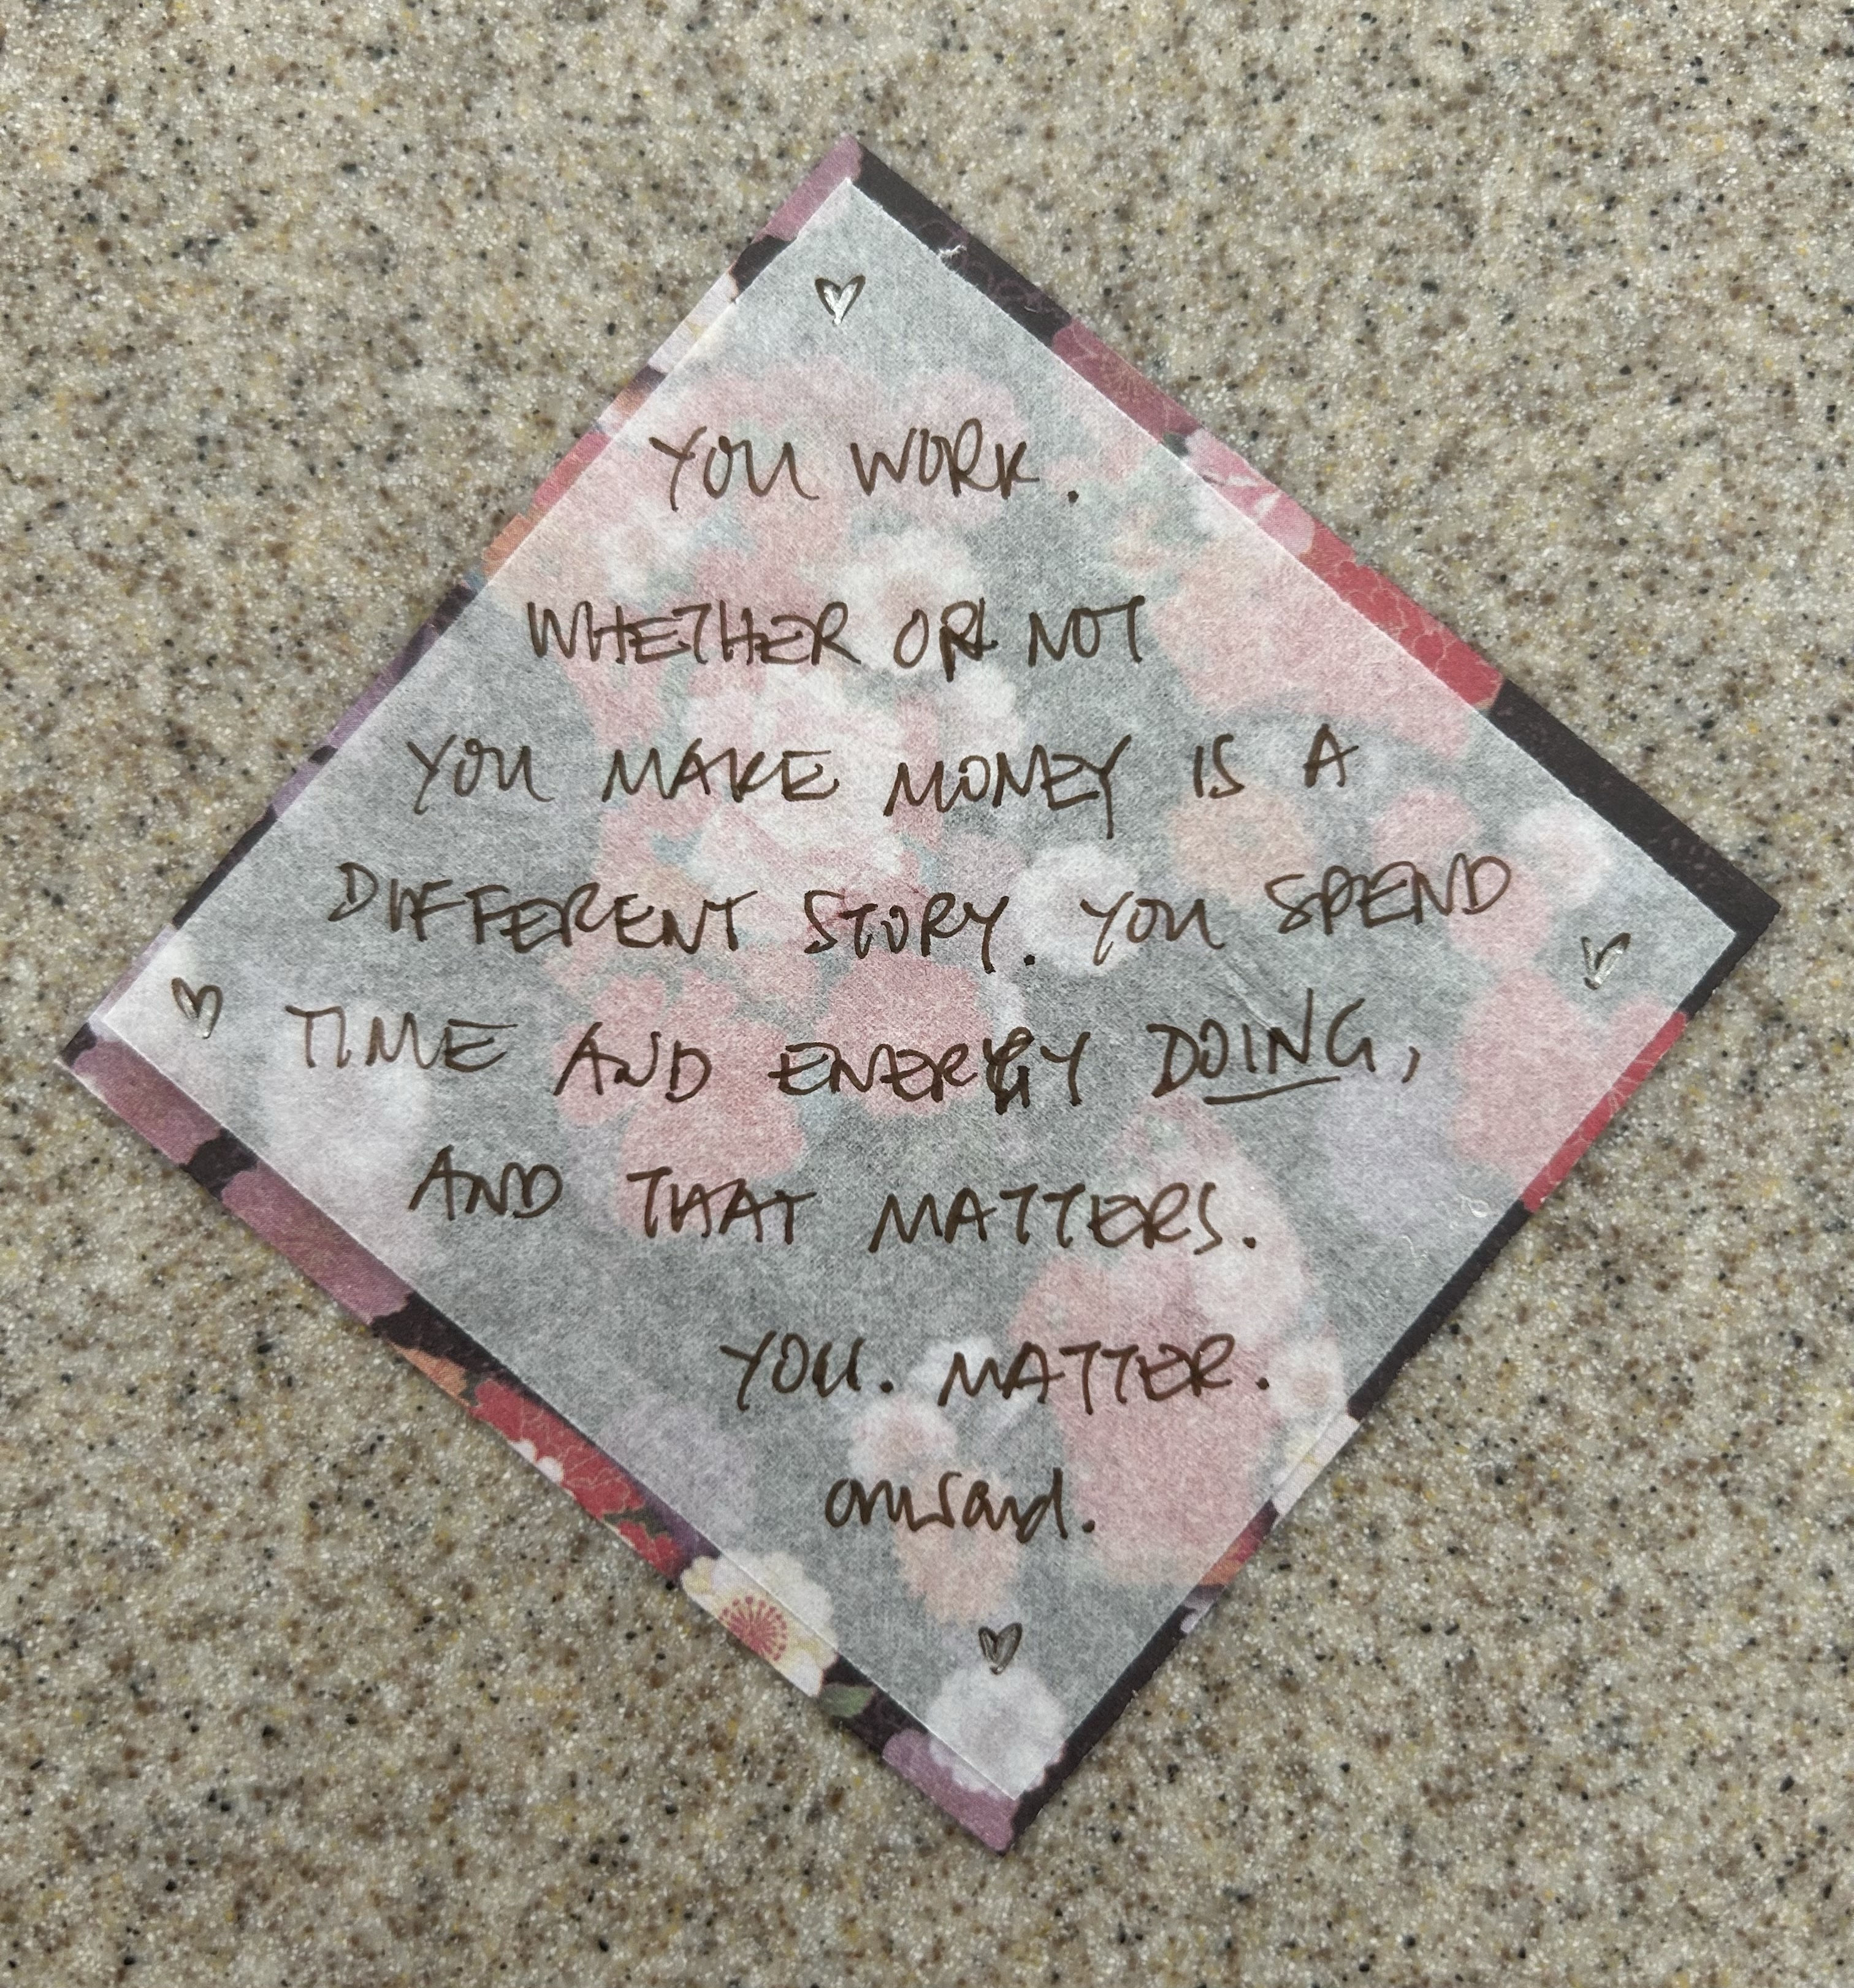 YOU WORK.
WHETHER OR NOT
YOU MAKE MONEY IS A
DIFFERENT STORY. YOU SPEND
TIME AND ENERGY DOING,
AND THAT MATTERS.
YOU. MATTER.